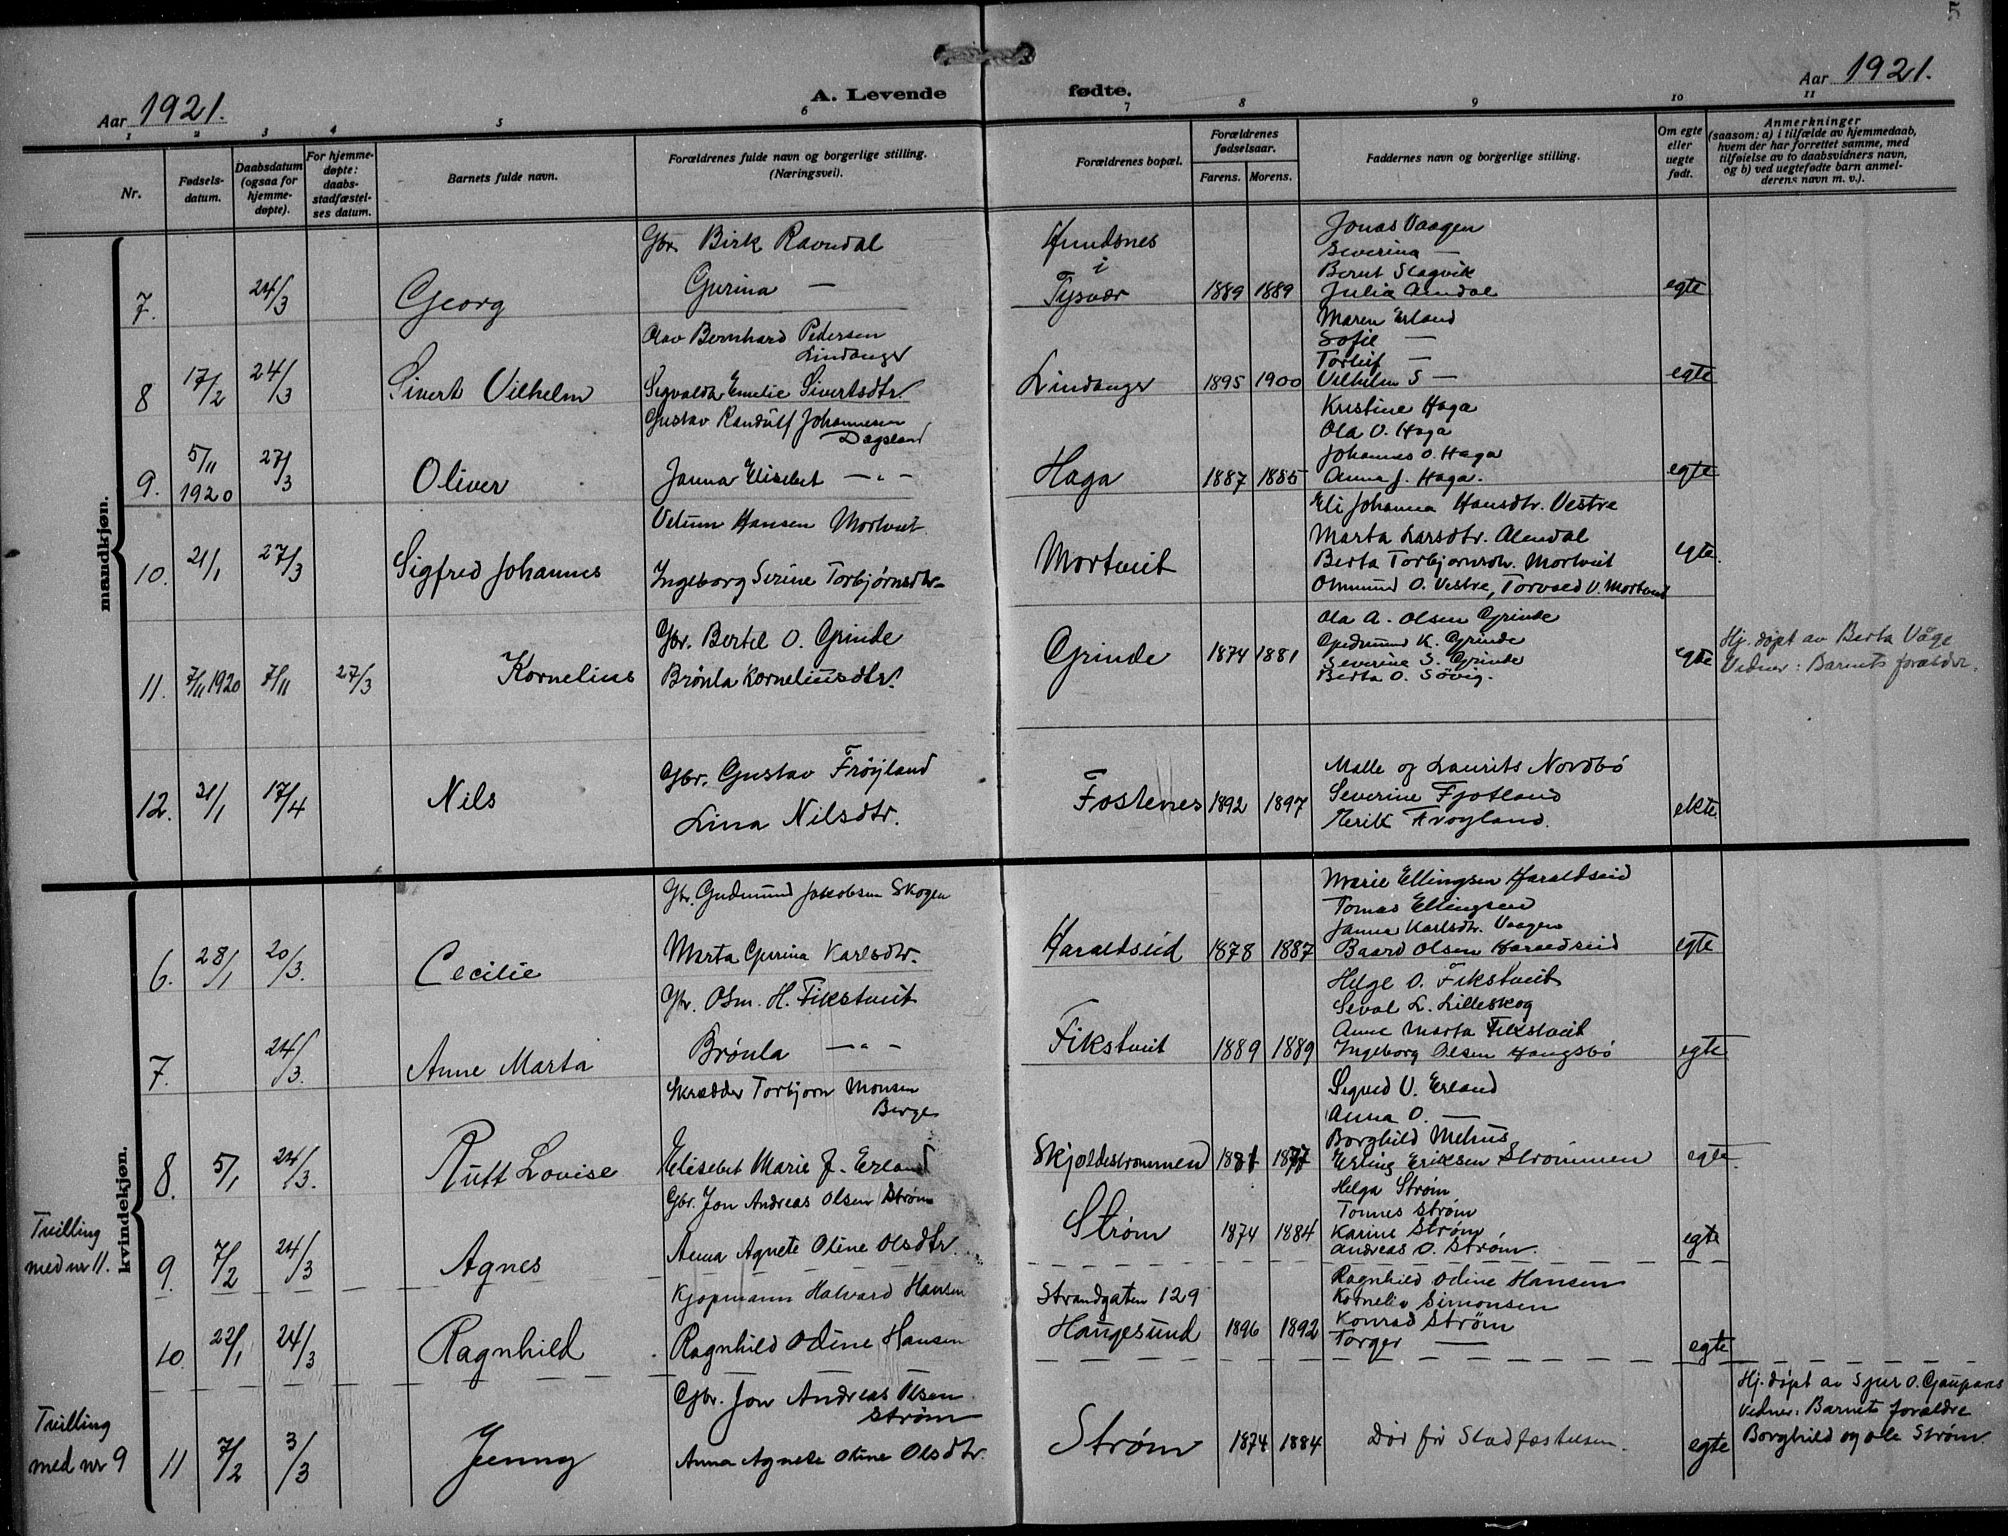 5
Aar 1921.
A. Levende fødte.
Aar 1921.
1 2 3 4 5 6 7 8 9 10 11
Nr.
Fødsels-
datum.
Daabsdatum
(ogsaa for
hjemme-
døpte).
For hjemme-
døpte:
daabs-
stadfæstel-
ses datum.
Barnets fulde navn.
Forældrenes fulde navn og borgerlige stilling.
(Næringsvei).
Forældrenes bopæl.
Forældrenes
fødselsaar.
Farens. Morens.
Faddernes navn og borgerlige stilling.
Om egte
eller
uegte
født.
Anmerkninger
(saasom: a) i tilfælde av hjemmedaab,
hvem der har forrettet samme, med
tilføielse av to daabsvidners navn,
og b) ved uegtefødte barn anmel-
derens navn m. v.).
mandkjøn.
7. 24/3 Georg
Gbr. Birk Ravndal
Gurina —
Hundsnes
i
Tysvær
1889 1889
Jonas Vaagen
Severina —
Bernt Slagvik
Julia Amdal
egte
8 17/2 24/3 Sivert Vilhelm
Olav Bernhard Pedersen
Lindanger
Segvalda Emelie Sivertsdtr.
Lindanger 1895 1900
Maren Erland
Sofie —
Torleif —
Vilhelm S —
egte
9. 5/11 1920 27/3 Oliver
Gustav Randulf Johannesen
Dagsland
Janna Elisebet — " —
Haga 1887 1885
Kristine Haga
Ola O. Haga
Johannes O. Haga
Anna J. Haga.
egte
10. 21/1 27/3 Sigfred Johannes
Hansen Mortveit
Ingeborg Serine Torbjørnsdtr.
Mortveit
Eli Johanna Hansdtr. Vestre
Marta Larsdtr. Alendal
Berta Torbjornsdr. Mortveit
Omund O. Vestre, Torvald V. Mortveit
egte.
11. 7/11 1920 7/11 27/3 Kornelius
Gbr. Bertel O. Grinde
Brønla Korneliusdtr.
Grinde 1874 1881
Ola A. Olsen Grinde
Gudmund K. Grinde
Severine S. Grinde
Berta O. Søvig.
egte
Hj. døpt av Berta Våge
Vidner: Barnets forældre.
12. 31/1 17/4 Nils
Gbr. Gustav Frøyland
Lina Nilsdtr.
Fostenes 1892 1897
Malle og Laurits Nordbø
Severine Fjotland
Henrik Frøyland.
ekte
kvindekjøn.
6. 28/1 20/3. Cecilie
Gbr. Gudmund Jakobsen Skogen
Marta Gurina Karlsdtr.
Haraldseid 1878 1887
Marie Ellingsen Haraldseid
Tomas Ellingsen
Janna Karlsdtr. Vaagen
Baard Olsen Haraldseid
egte
7. 24/3. Anne Marta
Gbr. Osm. H. Fikstveit
Brønla — " —
Fikstveit 1889 1889
Helge O. Fikstveit
Seval L. Lilleskog
Anne Marta Fikstveit
Ingeborg Olsen Hongsbø
egte
8. 5/1 24/3. Rutt Lovise
Skrædder Torbjorn Monsen
Berge
Elisebet Marie J. Erland
Skjoldestrømmen 1881 1877
Sigvid O. Erland
Anna O. —
Borghild Mehus
Erling Eriksen Strømmen
egte.
Tvilling
med nr 11.
9. 7/2 24/3 Agnes
Gbr. Jon Andreas Olsen Strøm
Anna Agnete Oline Olsdtr.
Strøm 1874 1884
Helga Strøm
Tonnes Strøm
Karine Strøm
Andreas O. Strøm.
egte
10. 22/1 24/3 Ragnhild
Kjøpmann Halvard Hansen
Ragnhild Odine Hansen
Strandgaten 129
Haugesund 1896 1892
Ragnhild Odine Hansen
Kornelia Simonsen
Konrad Strøm
Torger —
egte
Tvilling
med nr 9
11 7/2 3/3 Jenny
Gbr. Jon Andreas Olsen
Strøm
Anna Agnete Oline Olsdtr.
Strøm 1874 1884
Død før Stadfæstelsen.
egte
Hj. døpt av Sjur O. Gaupaas
Vidner: Barnets forældre
Borghild og Ole Strøm.